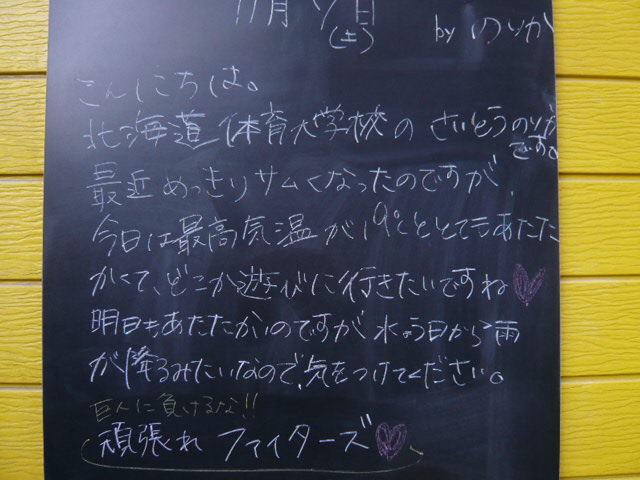 11月7日
(土) by のりか
こんにちは。
北海道体育大学校の さいとうのりか
です。
最近めっきりサムくなったのですが、
今日は最高気温が19℃ととてもあたた
かくて、どこか遊びに行きたいですね♡
明日もあたたかいのですが 水よう日から雨
が降るみたいなので、気をつけてください。
巨人に負けるな!!
頑張れ ファイターズ♡